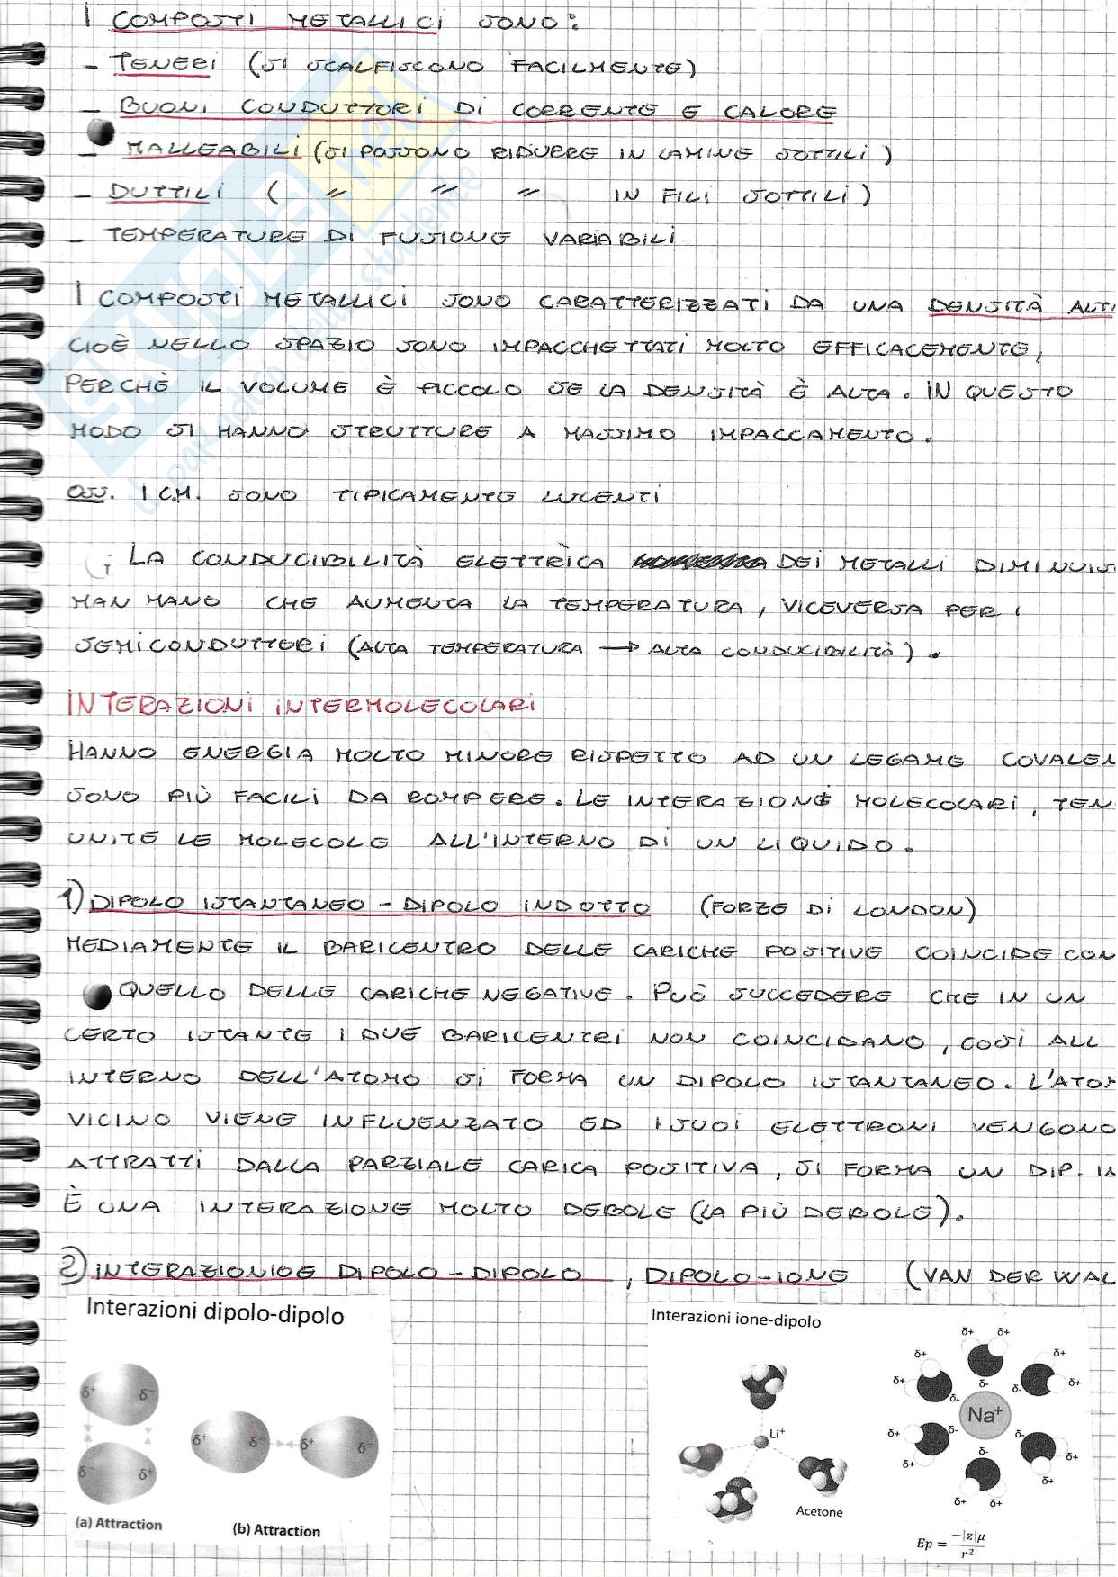 I COMPOSTI METALLICI SONO:
- TENERI (SI SCALFISCONO FACILMENTE)
- BUONI CONDUTTORI DI CORRENTE E CALORE
- MALLEABILI (SI POSSONO RIDURRE IN LAMINE SOTTILI)
- DUTTILI ( " " " IN FILI SOTTILI)
- TEMPERATURE DI FUSIONE VARIABILI
I COMPOSTI METALLICI SONO CARATTERIZZATI DA UNA DENSITÀ ALTA
CIOÈ NELLO SPAZIO SONO IMPACCHETTATI MOLTO EFFICACEMENTE,
PERCHÈ IL VOLUME È PICCOLO SE LA DENSITÀ È ALTA. IN QUESTO
MODO SI HANNO STRUTTURE A MASSIMO IMPACCAMENTO.
OSS. I C.M. SONO TIPICAMENTE LUCENTI
LA CONDUCIBILITÀ ELETTRICA DEI METALLI DIMINUIS
MAN MANO CHE AUMENTA LA TEMPERATURA, VICEVERSA PER I
SEMICONDUTTORI (ALTA TEMPERATURA → ALTA CONDUCIBILITÀ).
INTERAZIONI INTERMOLECOLARI
HANNO ENERGIA MOLTO MINORE RISPETTO AD UN LEGAME COVALEN
SONO PIÙ FACILI DA ROMPERE. LE INTERAZIONE MOLECOLARI, TEN
UNITE LE MOLECOLE ALL'INTERNO DI UN LIQUIDO.
1) DIPOLO ISTANTANEO - DIPOLO INDOTTO (FORZE DI LONDON)
MEDIAMENTE IL BARICENTRO DELLE CARICHE POSITIVE COINCIDE CON
QUELLO DELLE CARICHE NEGATIVE. PUÒ SUCCEDERE CHE IN UN
CERTO ISTANTE I DUE BARICENTRI NON COINCIDANO, COSÌ ALL
INTERNO DELL'ATOMO SI FORMA UN DIPOLO ISTANTANEO. L'ATOM
VICINO VIENE INFLUENZATO ED I SUOI ELETTRONI VENGONO
ATTRATTI DALLA PARZIALE CARICA POSITIVA, SI FORMA UN DIP. IN
È UNA INTERAZIONE MOLTO DEBOLE (LA PIÙ DEBOLE).
2) INTERAZIONIOE DIPOLO-DIPOLO, DIPOLO-IONE (VAN DER WAL
Interazioni dipolo-dipolo
δ+ δ-
δ- δ+
(a) Attraction
δ+ δ- δ+ δ-
(b) Attraction
Interazioni ione-dipolo
Li+
Acetone
Na+
δ+ δ+ δ+ δ+ δ+ δ+ δ+ δ+ δ+ δ+ δ+ δ+
δ- δ- δ- δ- δ- δ-
Ep = -|z|μ / r²